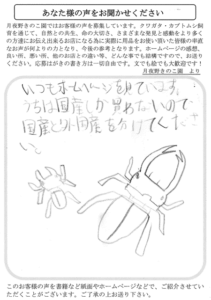 あなた様の声をお聞かせください
月夜野きのこ園ではお客様の声を募集しています。クワガタ・カブトムシ飼
育を通じて、自然との共生、命の大切さ、さまざまな発見と感動をより多く
の方達にお伝え出来るお店になる為に実際に用品をお使い頂いた皆様の率直
なお声が何よりの力となり、今後の参考となります。ホームページの感想、
良い所、悪い所、他のお店との違い等、どんな事でも結構ですので、お送り
ください。応募はがきの書き方は一切自由です。文でも絵でも大歓迎です！
月夜野きのこ園 より
いつもホームページを見ています。
うちは国産しか買わないので
国産
このお客様の声を書籍など紙面やホームページなどで、ご紹介させていた
だくことがございます。ご了承の上お送り下さい。